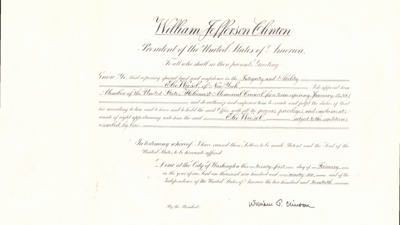 William Jefferson Clinton
President of the United States of America.
To all who shall see these presents, Greeting:
Know Ye, that reposing special trust and confidence in the Integrity and Ability
of Elie Wiesel, of New York, I do appoint him
Member of the United States Holocaust Memorial Council for a term expiring January 15,
and do authorize and empower him to execute and fulfil the duties of that
Office according to law and to have and to hold the said Office with all the powers, privileges, and emoluments
thereunto of right appertaining unto him the said Elie Wiesel, subject to the conditions
prescribed by law.
In testimony whereof, I have caused these Letters to be made Patent and the Seal of the
United States to be hereunto affixed.
Done at the City of Washington this twenty-first day of
in the year of our Lord one thousand nine hundred and ninety-six and of the
Independence of the United States of America the two hundred and twentieth.
By the President:
William J. Clinton